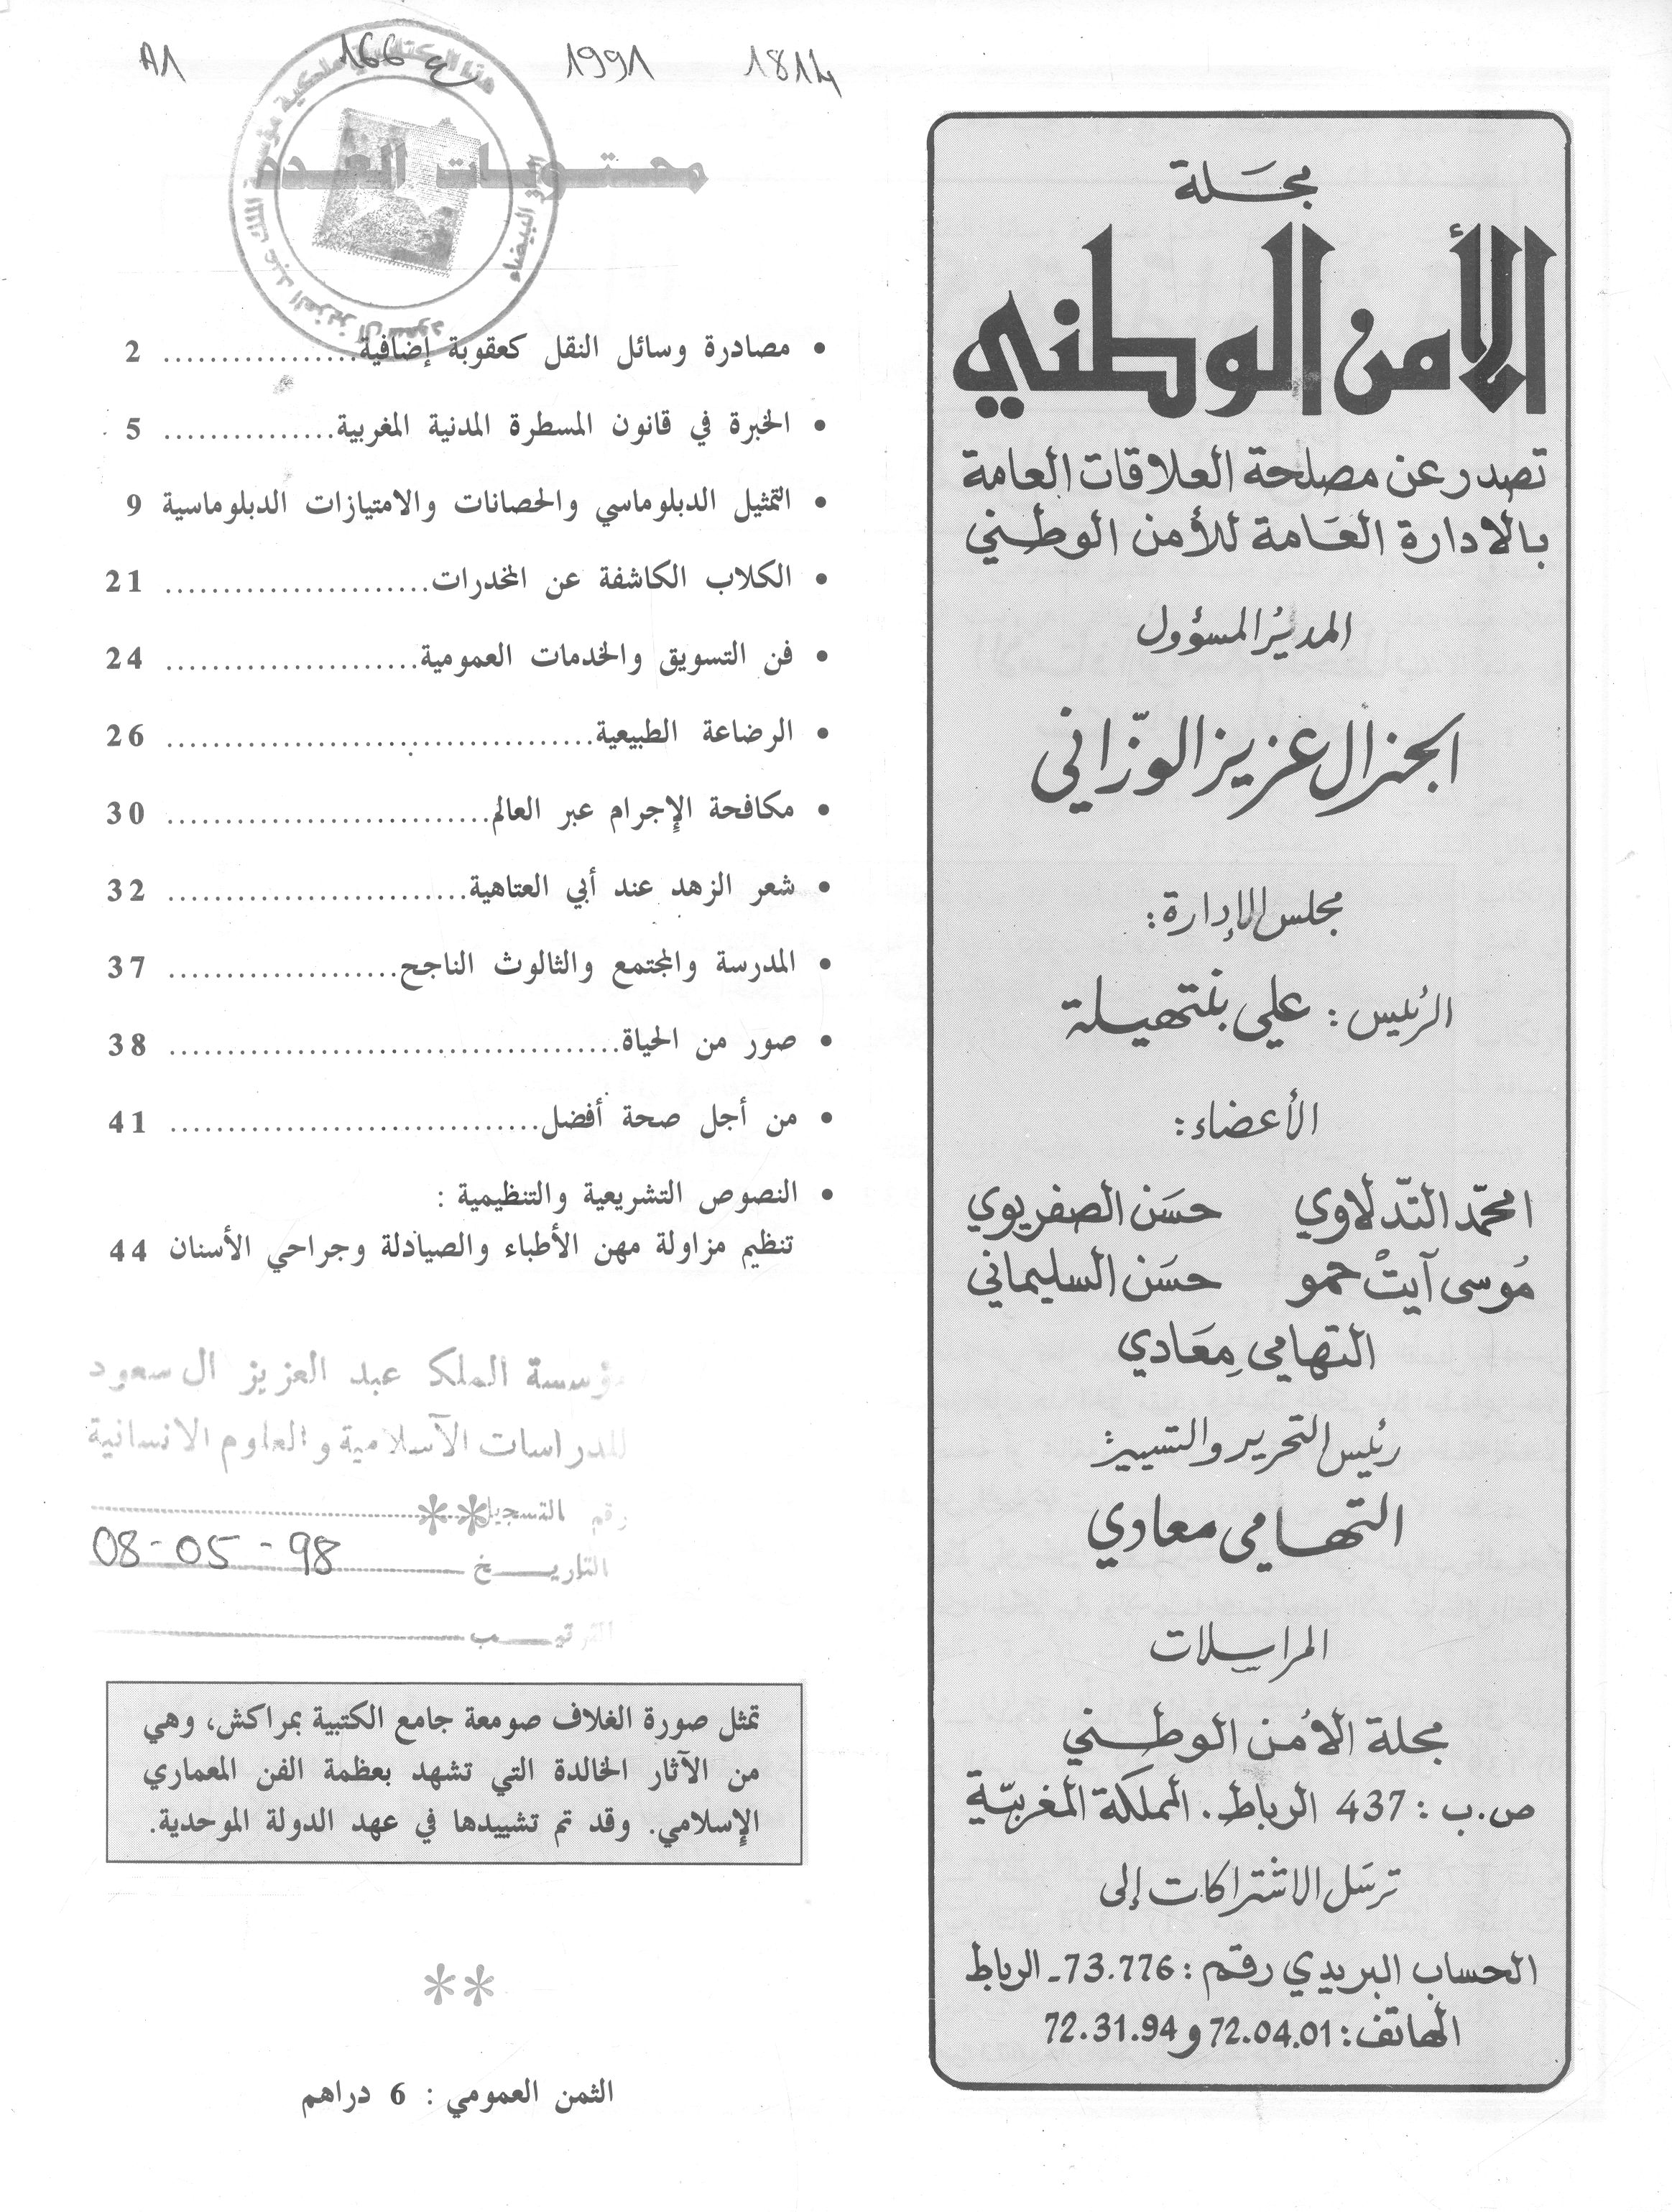 A1 166 ع 1991 1814
مجلة
الأمن الوطني
تصدر عن مصلحة العلاقات العامة
بالادارة العامة للأمن الوطني
المدير المسؤول
الجنرال عزيز الوزّاني
مجلس الإدارة:
الرئيس: علي بنتهيلة
الأعضاء:
امحمّد التّدلاوي حسَن الصفريوي
مُوسى آيتْ حمو حسَن السليماني
التهامي معَادي
رئيس التحرير والتسيير:
التهامي معادي
المراسلات
مجلة الأمن الوطني
ص.ب: 437 الرباط. المملكة المغربيّة
ترسَل الاشتراكات إلى
الحساب البريدي رقم: 73.776ـ الرباط
الهاتف: 72.04.01 و 72.31.94
محتويات العدد
هذا الكتاب في ملكية مؤسسة الملك عبد العزيز آل سعود
الدار البيضاء
• مصادرة وسائل النقل كعقوبة إضافية................. 2
• الخبرة في قانون المسطرة المدنية المغربية............... 5
• التمثيل الدبلوماسي والحصانات والامتيازات الدبلوماسية 9
• الكلاب الكاشفة عن المخدرات....................... 21
• فن التسويق والخدمات العمومية...................... 24
• الرضاعة الطبيعية..................................... 26
• مكافحة الإجرام عبر العالم............................ 30
• شعر الزهد عند أبي العتاهية.......................... 32
• المدرسة والمجتمع والثالوث الناجح.................... 37
• صور من الحياة....................................... 38
• من أجل صحة أفضل................................ 41
• النصوص التشريعية والتنظيمية :
تنظيم مزاولة مهن الأطباء والصيادلة وجراحي الأسنان 44
مؤسسة الملك عبد العزيز ال سعود
للدراسات الآسلامية والعلوم الانسانية
رقم التسجيل
التاريخ 08-05-98
الترتيب
تمثل صورة الغلاف صومعة جامع الكتبية بمراكش، وهي
من الآثار الخالدة التي تشهد بعظمة الفن المعماري
الإسلامي. وقد تم تشييدها في عهد الدولة الموحدية.
الثمن العمومي : 6 دراهم